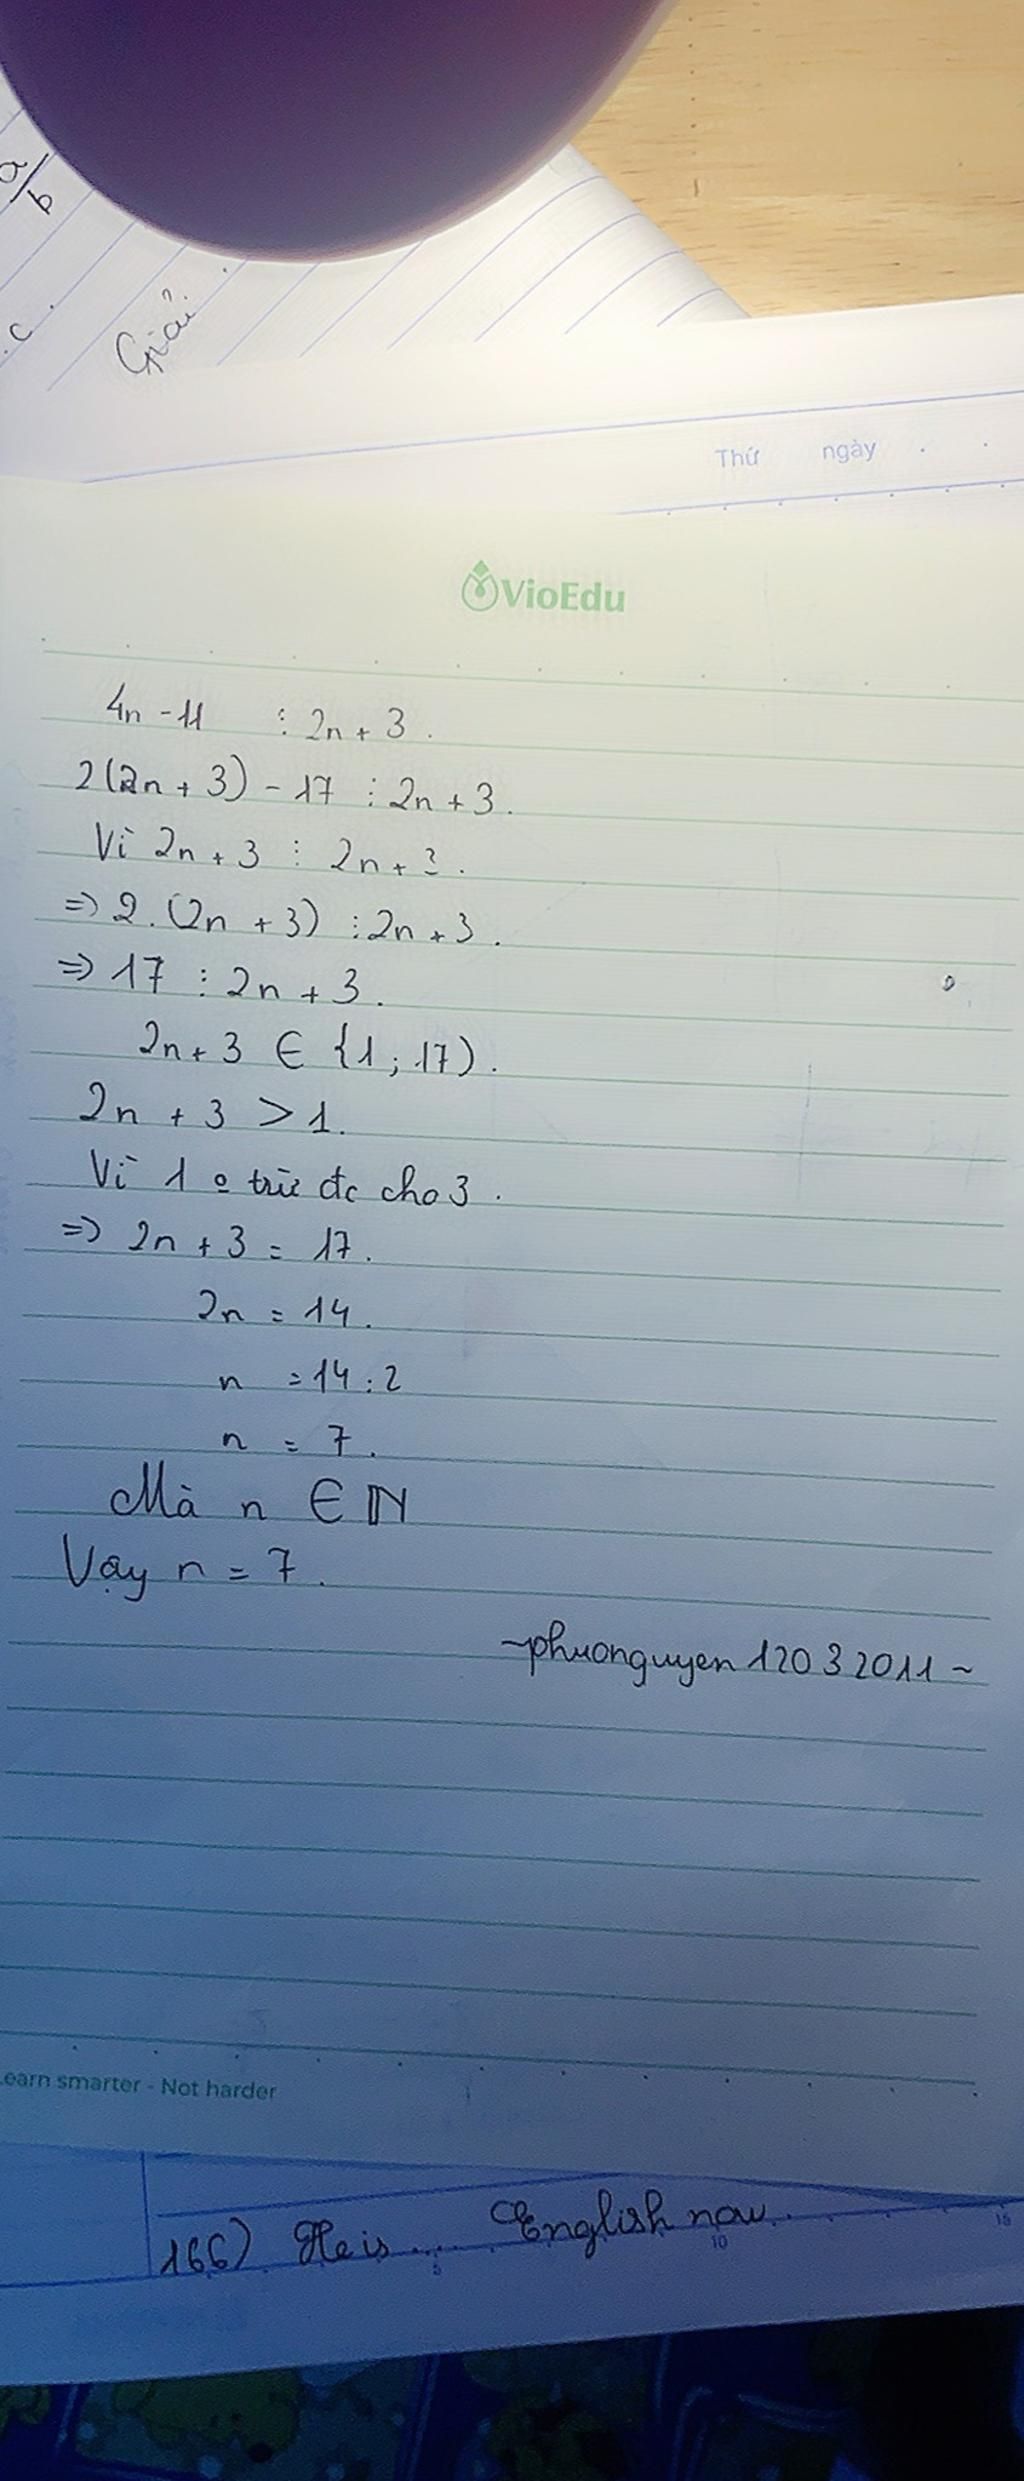 a/b
c
Giải
Thứ ngày
VioEdu
4n - 11 ⋮ 2n + 3.
2(2n + 3) - 17 ⋮ 2n + 3.
Vì 2n + 3 ⋮ 2n + 3.
=> 2.(2n + 3) ⋮ 2n + 3.
=> 17 ⋮ 2n + 3.
2n + 3 ∈ {1; 17).
2n + 3 > 1.
Vì 1 o trừ đc cho 3.
=> 2n + 3 = 17.
2n = 14.
n = 14 : 2
n = 7.
Mà n ∈ ℕ
Vậy n = 7.
~phuonguyen12032011~
earn smarter - Not harder
166) He is .... English now.
5 10 15